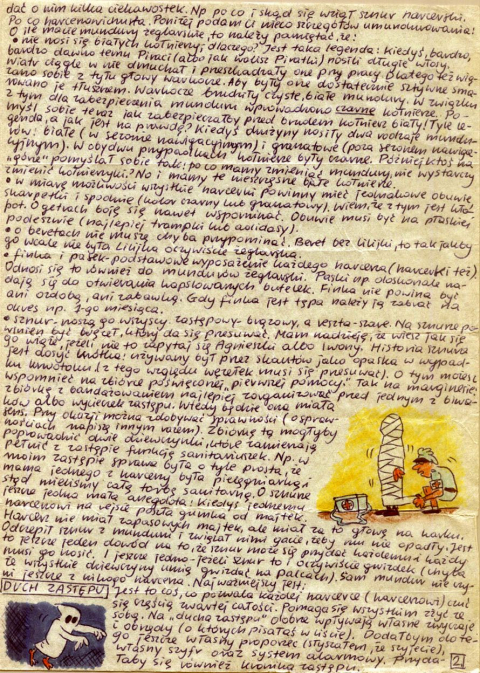 dać o nim kilka ciekawostek. Np po co i skąd się wziął sznur harcerski.
Po co harcerzowi chusta. Poniżej podam Ci nieco szczegółów umundurowania:
O ile macie mundury żeglarskie, to należy pamiętać, że:
• nie nosi się białych kołnierzy, dlaczego? Jest taka legenda: kiedyś, bardzo,
bardzo dawno temu Piraci (albo jak wolisz Piratki) nosili długie włosy.
Wiatr ciągle w nie dmuchał i przeszkadzały one przy pracy. Dlatego też wią-
zano sobie z tyłu głowy warkocze. Aby były one dostatecznie sztywne sma-
rowano je tłuszczem. Warkocze brudziły czyste, białe mundury. W związku
z tym dla zabezpieczenia munduru wprowadzono czarne kołnierze. Po-
myśl sobie teraz jak zabezpieczałby przed brudem kołnierz biały! Tyle le-
genda, a jak jest na prawdę? Kiedyś drużyny nosiły dwa rodzaje mundu-
rów: białe (w sezonie nawigacyjnym) i granatowe (poza sezonem nawiga-
cyjnym). W obydwu przypadkach kołnierze były czarne. Później ktoś na
"górze" pomyślał sobie tak: po co mamy zmieniać mundury, nie wystarczy
zmienić kołnierzyki? No i mamy te nieszczęsne białe kołnierze.
• w miarę możliwości wszystkie harcerki powinny mieć jednakowe obuwie,
skarpetki i spodnie (kolor czarny lub granatowy), wiem, że z tym jest kło-
pot. O getrach boję się nawet wspominać. Obuwie musi być na płaskiej
podeszwie (najlepiej trampki lub adidasy).
• o beretach nie muszę chyba przypominać. Beret bez lilijki, to tak jakby
go wcale nie było. Lilijka oczywiście żeglarska.
• finka i pasek - podstawowe wyposażenie każdego harcerza (harcerki też)
Odnosi się to również do mundurów żeglarskich. Paski np doskonale na-
dają się do otwierania kapslowanych butelek. Finka nie powinna być
ani ozdobą, ani zabawką. Gdy finka jest tępa należy ją zabrać na
okres np. 1-go miesiąca.
• sznur - noszą go wszyscy zastępowy - brązowy, a reszta - szare. Na sznurze po-
winien być węzeł, który da się przesuwać. Mam nadzieję, że wiesz jak się
go wiąże, jeżeli nie to zapytaj się Agnieszki albo Iwony. Historia sznura
jest dosyć krótka: używany był przez skautów jako opaska w wypad-
ku krwotoku (z tego względu węzełek musi się przesuwać). O tym możesz
wspomnieć na zbiórce poświęconej "pierwszej pomocy". Tak na marginesie,
zbiórkę z bandażowaniem najlepiej zorganizować przed jednym z biwa-
ków albo wycieczek zastępu. Wtedy będzie ona miała
sens. Przy okazji można zdobywać sprawności (o spraw-
nościach napiszę innym razem). Zbiórkę tę mogłyby
poprowadzić dwie dziewczynki, które zamierzają
pełnić z zastępie funkcję sanitariuszek. Np. w
moim zastępie sprawa była o tyle prosta, że
mama jednego z harcerzy była pielęgniarką i
stąd mieliśmy całą torbę sanitarną. O sznurze
jeszcze jedna mała anegdota: kiedyś jednemu
harcerzowi na rejsie poszła gumka od majtek.
Harcerz nie miał zapasowych majtek, ale miał za to głowę na karku.
Odczepił sznur z munduru i związał nimi gacie, żeby mu nie opadły. Jest
to jeszcze jeden dowód na to, że sznur może się przydać każdemu i każdy
musi go nosić. I jeszcze jedno. Jeżeli sznur to i oczywiście gwizdek (chyba,
że wszystkie dziewczyny umią gwizdać na palcach). Sam mundur nie czy-
ni jeszcze z nikogo harcerza. Najważniejszy jest:
DUCH ZASTĘPU Jest to coś, co pozwala każdej harcerce (harcerzowi) czuć
się częścią zwartej całości. Pomaga się wszystkim zżyć ze
sobą. Na "ducha zastępu" dobrze wpływają własne zwyczaje
i obrzędy (o których pisałaś w liście). Dodałbym do te-
go jeszcze własny proporzec (słyszałem, że szyjecie),
własny szyfr oraz system alarmowy. Przyda-
łaby się również kronika zastępu.
2